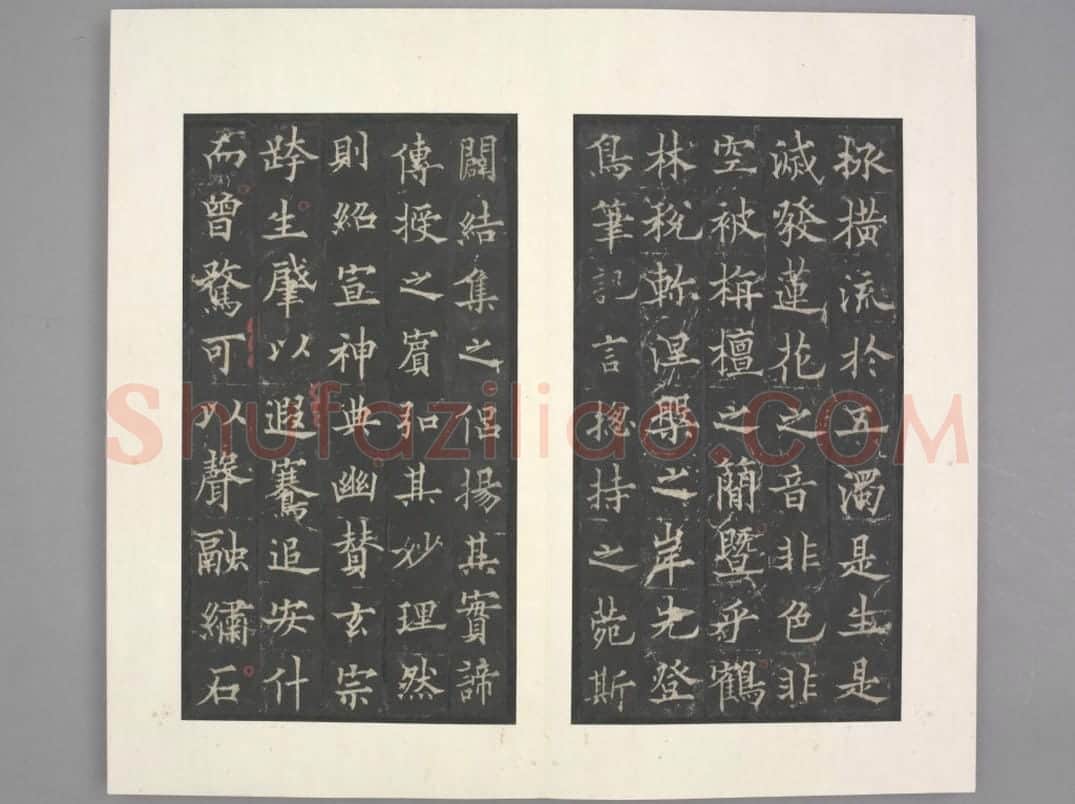 拯橫流於五濁是生是
滅發蓮花之音非色非
空被栴檀之簡暨乎鶴
林稅軫涅槃之岸先登
鳥筆記言揔持之菀斯
闢結集之侶揚其實諦
傳授之賓弘其妙理然
則紹宣神典幽贊玄宗
跨生肇以遐騫追安什
而曾騖可以聲融繡石
Shufaziliao.COM